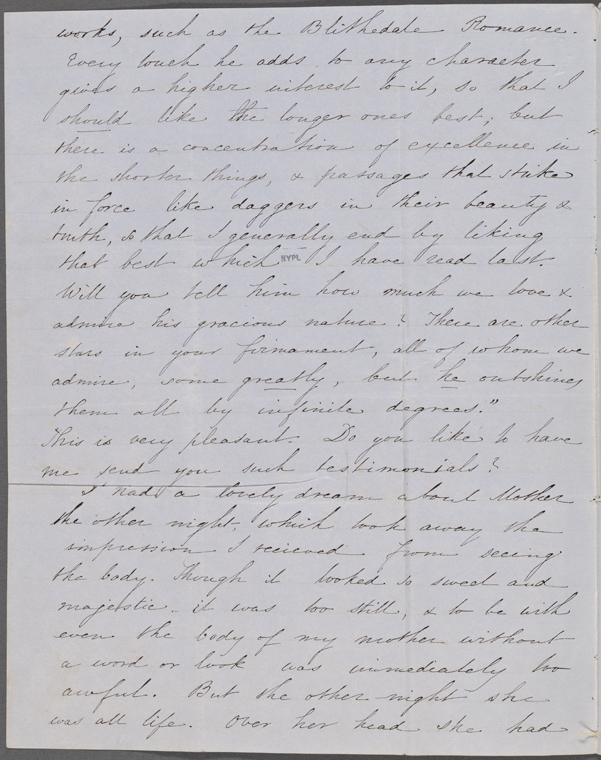 works, such as the Blithedale Romance.
Every touch he adds to any character
gives a higher interest to it, so that I
should like the longer ones best; but
there is a concentration of excellence in
the shorter things, & passages that strike
in force like daggers in their beauty &
truth, so that I generally end by liking
that best which NYPL I have read last.
Will you tell him how much we love &
admire his gracious nature? There are other
stars in your firmament, all of whom we
admire, some greatly, but he outshines
them all by infinite degrees."
This is very pleasant. Do you like to have
me send you such testimonials?
I had a lovely dream about Mother
the other night, which took away the
impression I recieved from seeing
the body. Though it looked so sweet and
majestic - it was too still, & to be with
even the body of my mother without
a word or look was immediately too
awful. But the other night she
was all life. Over her head she had